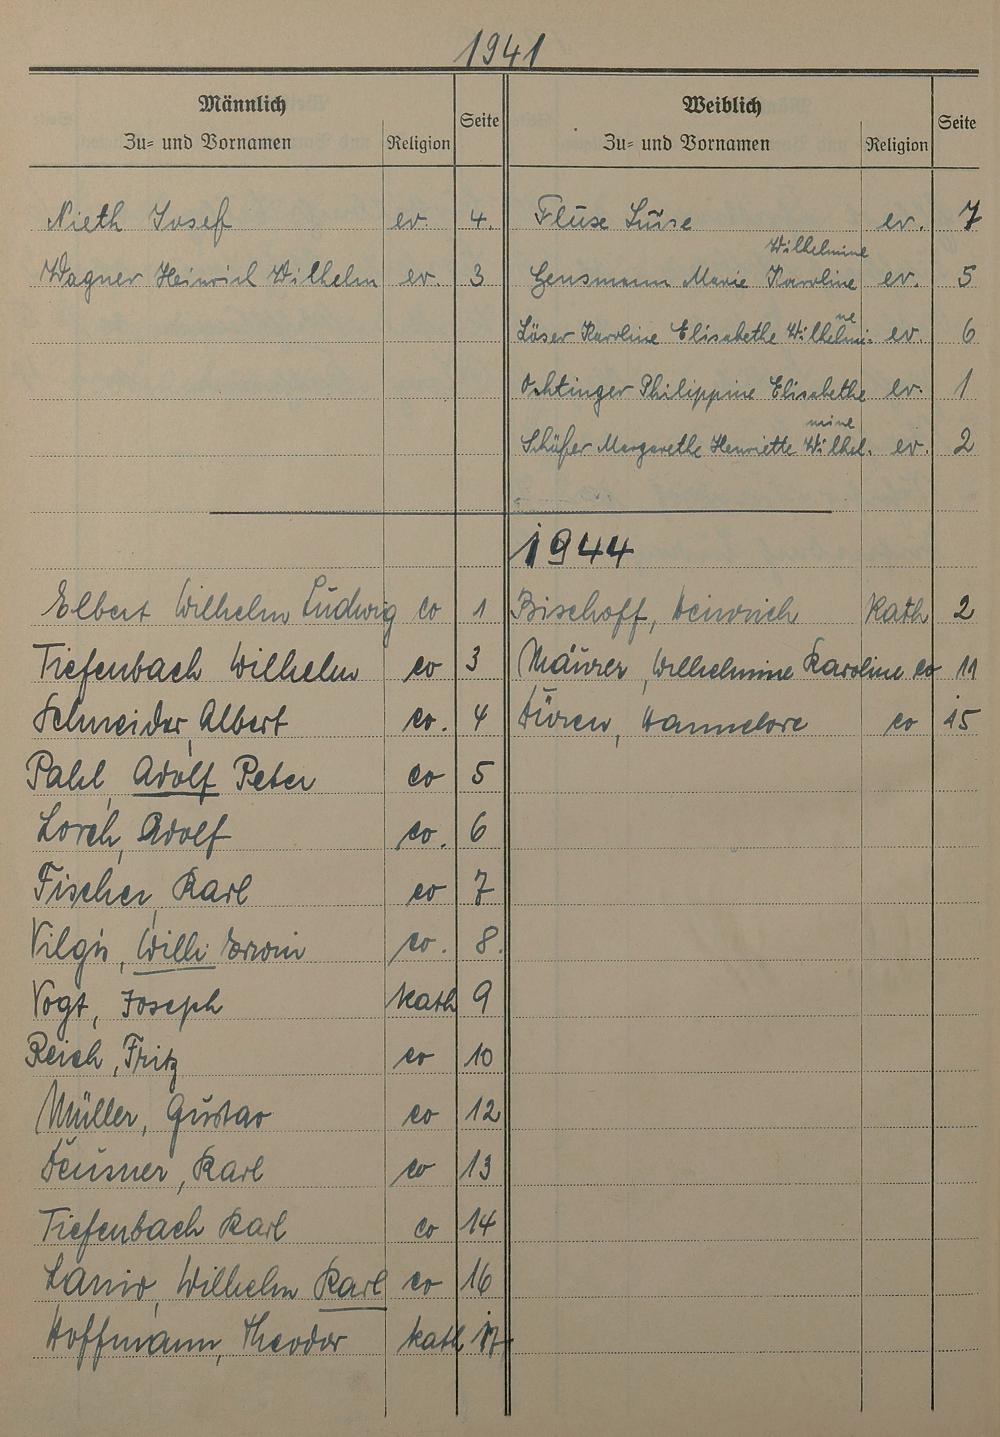 1941
Männlich
Zu- und Vornamen
Religion
Seite
Weiblich
Zu- und Vornamen
Religion
Seite
Nieth Josef ev. 4.
Wagner Heinrich Wilhelm ev. 3
Fluse Luise ev. 7
Wilhelmine
Gensmann Marie Karoline ev. 5
ne
Löser Karoline Elisabethe Wilhelmi- ev. 6
Ochtinger Philippine Elisabethe ev. 1
mine
Schäfer Margarethe Henriette Wilhel. ev. 2
1944
Elbert Wilhelm Ludwig ev 1
Tiefenbach Wilhelm ev 3
Schneider, Albert ev. 4
Pahl, Adolf Peter ev 5
Lorch, Adolf ev. 6
Fischer, Karl ev 7
Vilgis, Willi Erwin ev. 8.
Vogt, Joseph Kath 9
Reich, Fritz ev 10
Müller, Gustav ev 12
Deusner, Karl ev 13
Tiefenbach Karl ev 14
Wilhelm Karl ev 16
Hoffmann, Theodor kath 17
Bischoff, Heinrich Kath 2
Mäurer, Wilhelmine Karoline ev 11
Düren, Hannelore ev 15